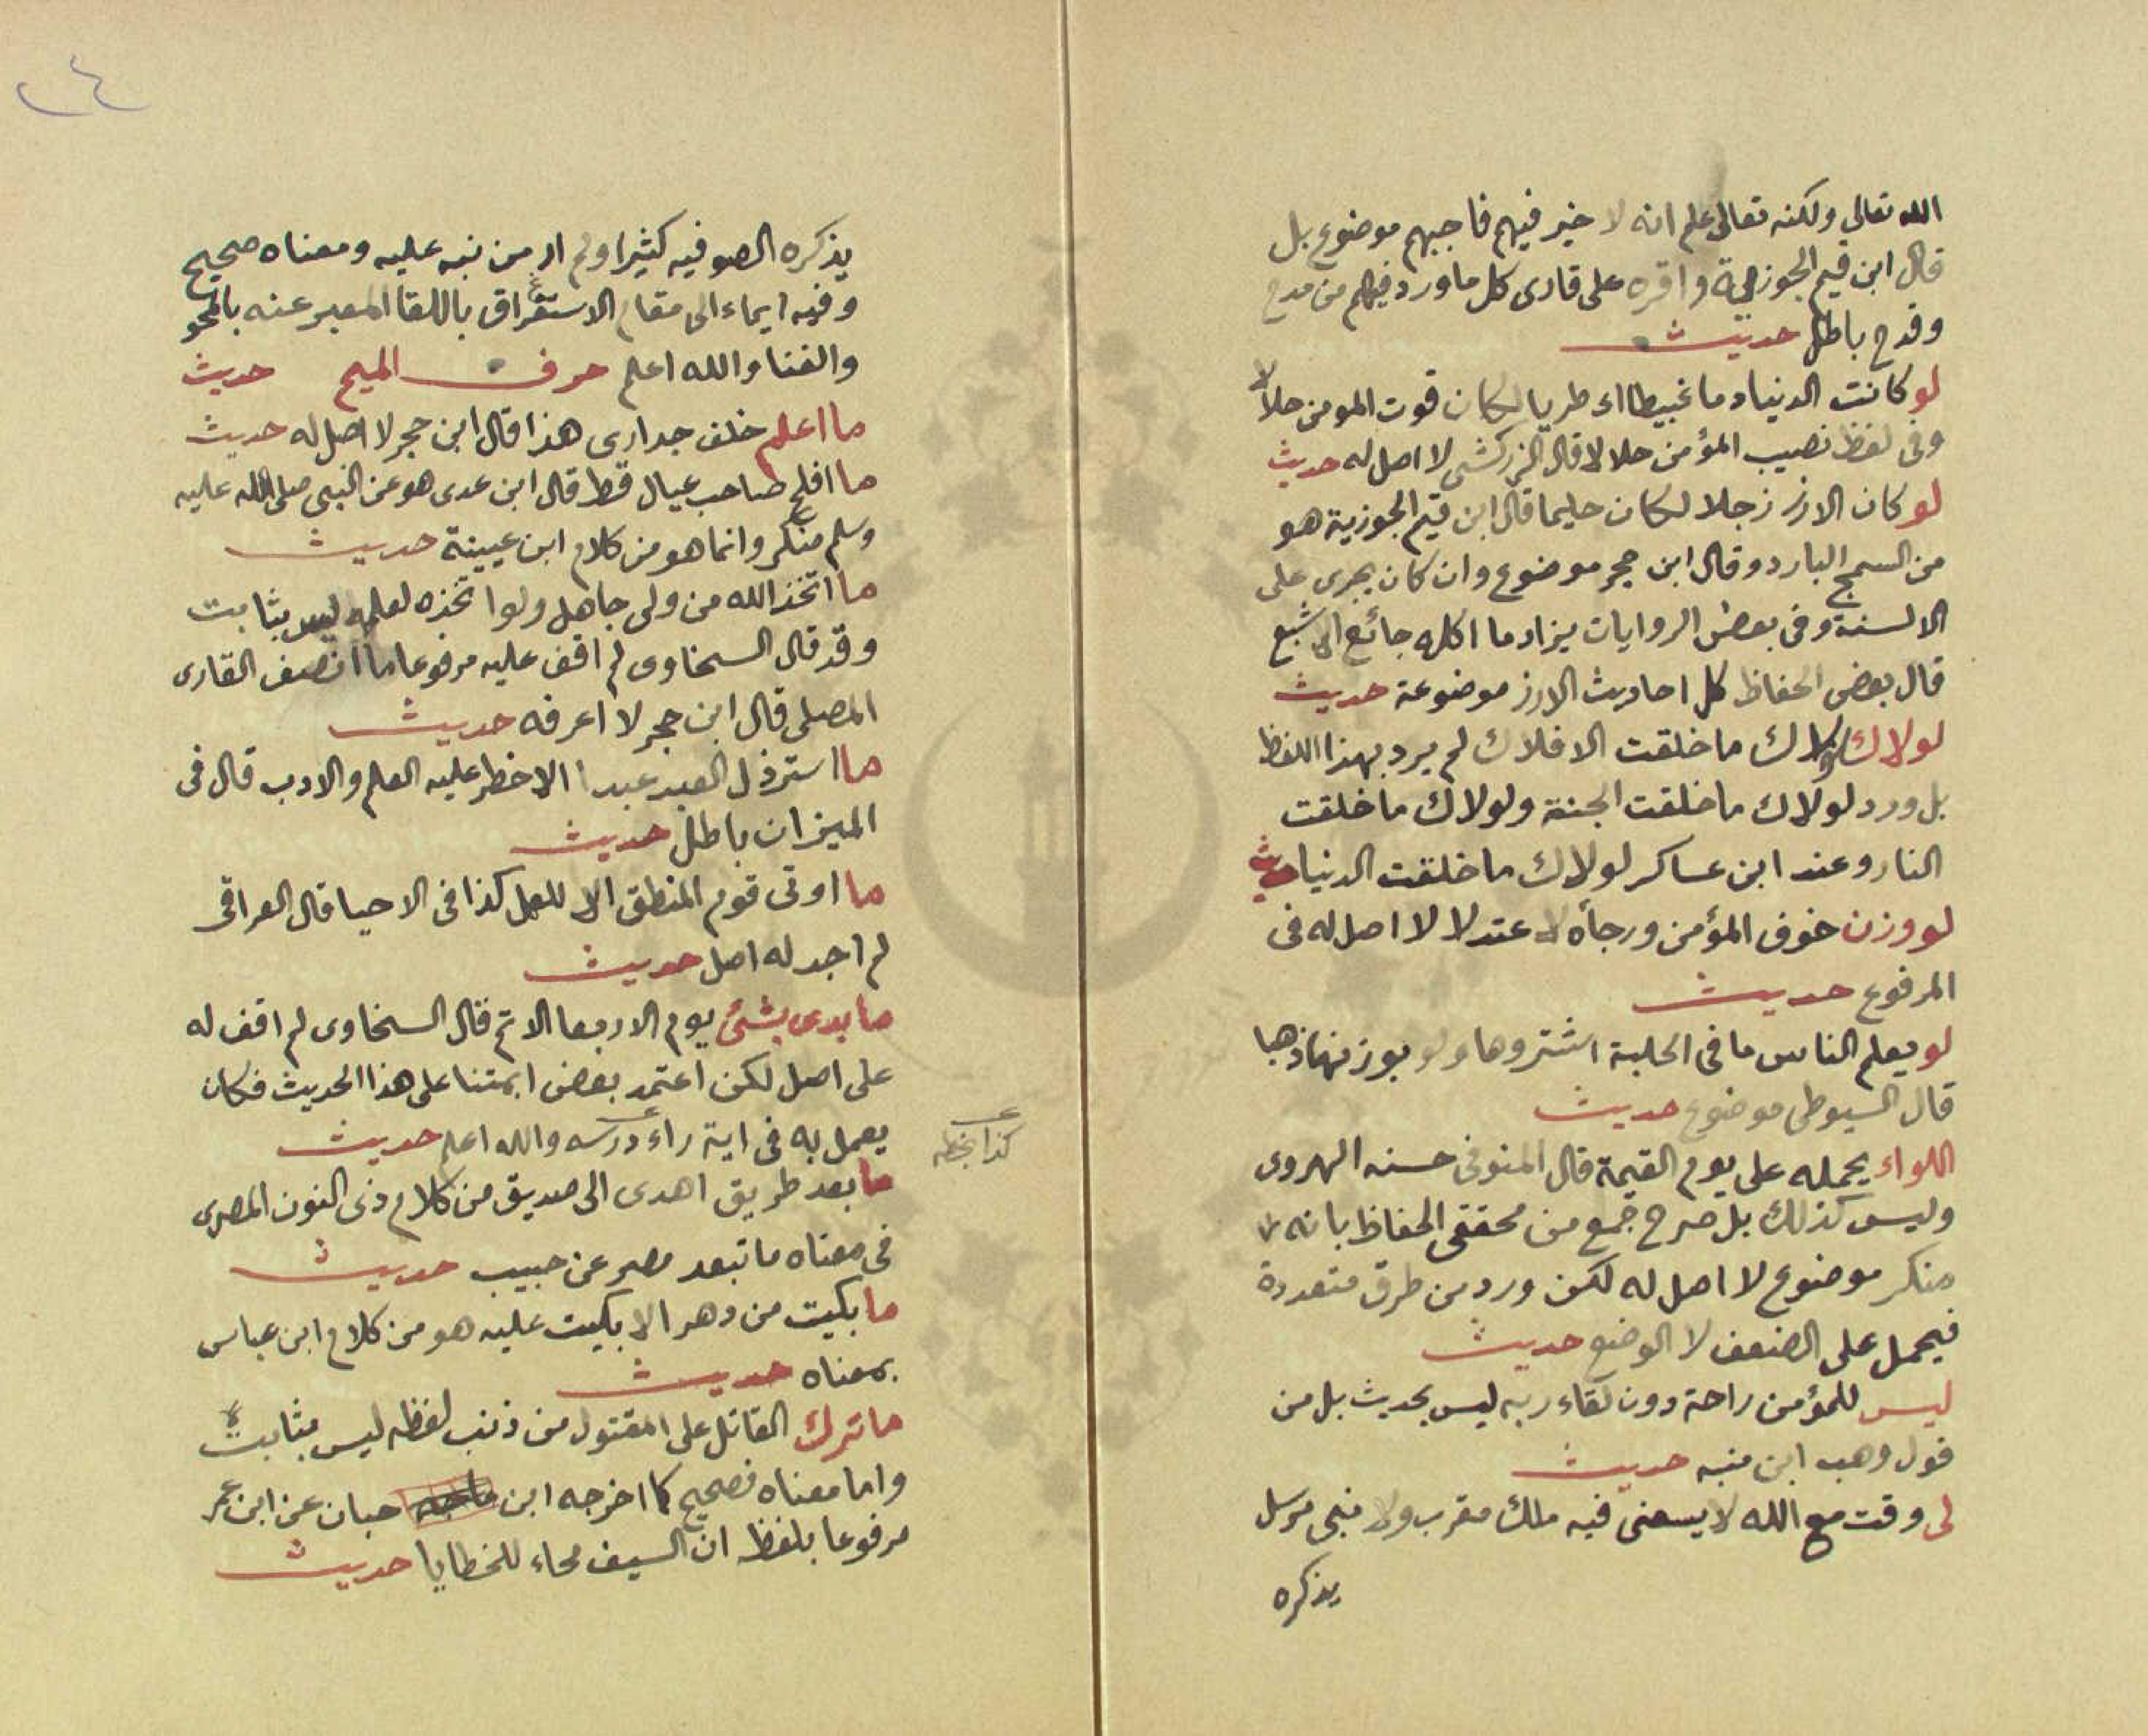 الله تعالى ولكنه تعالى علم انه لا خير فيهم فاجبهم موضوع بل
قال ابن قيم الجوزية واقره على قارى كل ما ورد فيهم من مدح
وقدح باطل حديث
لو كانت الدنيا دما غبيطا اى طريا لكان قوت المومن حلالا
وفى لفظ نصيب المؤمن حلالا قال الزركشى لا اصل له حديث
لو كان الارز رجلا لكان حليما قال ابن قيم الجوزية هو
من السمج البارد وقال ابن حجر موضوع وان كان يجرى على
الالسنة وفى بعض الروايات بزاد ما اكله جائع الى شبع
قال بعض الحفاظ كل احاديث الارز موضوعة حديث
لولاك لولاك ما خلقت الافلاك لم يرد بهذا اللفظ
بل ورد لولاك ما خلقت الجنة ولولاك ما خلقت
النار وعند ابن عساكر لولاك ما خلقت الدنيا حديث
لو وزن خوف المؤمن ورجاه لاعتدلا لا اصل له فى
المرفوع حديث
لو يعلم الناس ما فى الحلبة اشتروها ولو بوزنها ذهبا
قال السيوطى موضوع حديث
اللواء يحمله على يوم القيمة قال المنوفى حسنه الهروى
وليس كذلك بل صرح جمع من محققى الحفاظ بانه
منكر موضوع لا اصل له لكن ورد من طرق متعددة
فيحمل على الضعف لا الوضع حديث
ليس للمؤمن راحة دون لقاء ربه ليس بحديث بل من
قول وهب ابن منبه حديث
لى وقت مع الله لا يسعنى فيه ملك مقرب ولا نبى مرسل
يذكره
٢٤
يذكره الصوفيه كثيرا ولم ار من نبه عليه ومعناه صحيح
وفيه ايماء الى مقام الاستغراق باللقا المعبر عنه بالمحو
والفنا والله اعلم حرف الميم حديث
ما اعلم خلف جدارى هذا قال ابن حجر لا اصل له حديث
ما افلح صاحب عيال قط قال ابن عدى هو عن النبى صلى الله عليه
وسلم منكر وانما هو من كلام ابن عيينة حديث
ما اتخذ الله من ولى جاهل ولو اتخذه لعلمه ليس بثابت
وقد قال السخاوى لم اقف عليه مرفوعا ما انصف القارى
المصلى قال ابن حجر لا اعرفه حديث
ما استرذل العبد عبدا الا حظر عليه العلم والادب قال فى
الميزان باطل حديث
ما اوتى قوم المنطق الا للعمل كذا فى الاحيا قال العراقى
لم اجد له اصل حديث
ما بدى بشئ يوم الاربعا الا تم قال السخاوى لم اقف له
على اصل لكن اعتمد بعض ايمتنا على هذا الحديث فكان
يعمل به فى اية راء درسه والله اعلم حديث
كذا بخطه
ما بعد طريق اهدى الى صديق من كلام ذى النون المصرى
فى معناه ما تبعد مصر عن حبيب حديث
ما بكيت من دهر الا بكيت عليه هو من كلام ابن عباس
بمعناه حديث
ما ترك القاتل على المقتول من ذنب لفظه ليس بثابت
واما معناه فصحيح كما اخرجه ابن ماجه حبان عن ابن عمر
مرفوعا بلفظ ان السيف محاء للخطايا حديث